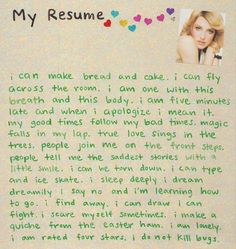 My Resume
i can make bread and cake. i can fly
across the room. i am one with this
breath and this body. i am five minutes
late and when i apologize i mean it.
my good times follow my bad times. magic
falls in my lap. true love sings in the
trees. people join me on the front steps.
people tell me the saddest stories with a
little smile. i can be torn down. i can type
and ice skate. i sleep deeply. i dream
dreamily. i say no and i'm learning how
to go. i find away. i can draw. i can
fight. i scare myself sometimes. i make a
quiche from the easter ham. i am lovely.
i am rated four stars. i do not kill bugs.